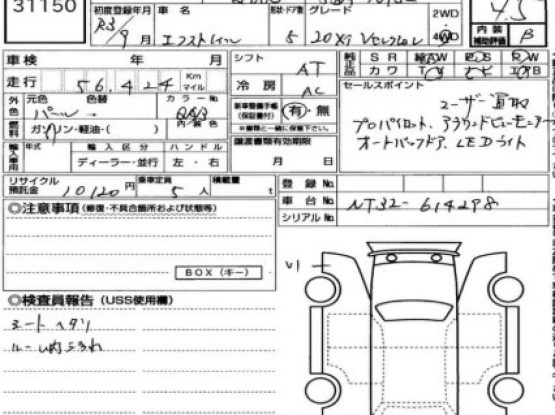 31150
初度登録年月 車名 形状・ドア数 グレード 2WD 4WD 4.5
R3/9月 エクストレイル 5 20Xi Vセレクション 内装補助評価 B
車検 年 月 シフト AT 純正品 SR AW PS PW
走行 56,424 Km マイル 冷房 AC カワ TV ナビ エアB
外色 元色 色替 カラーNo. セールスポイント
パール QAB 新車整備手帳(保証書付) 有・無 ユーザー買取
燃料 ガソリン・軽油・( ) 内装色 ※書類と車に有 プロパイロット、アラウンドビューモニター
輸入車用 年式 輸入区分 ハンドル 譲渡書類有効期限 オートバックドア、LEDライト
ディーラー・並行 左・右 月 日
リサイクル預託金 10120円 乗車定員 5人 積載量 t 登録No.
◎注意事項(修復・不具合箇所および状態等) 車台No. NT32-614298
シリアルNo.
BOX(キー)
U1
◎検査員報告(USS使用欄)
シートヘタリ
ルーム内ヨゴレ